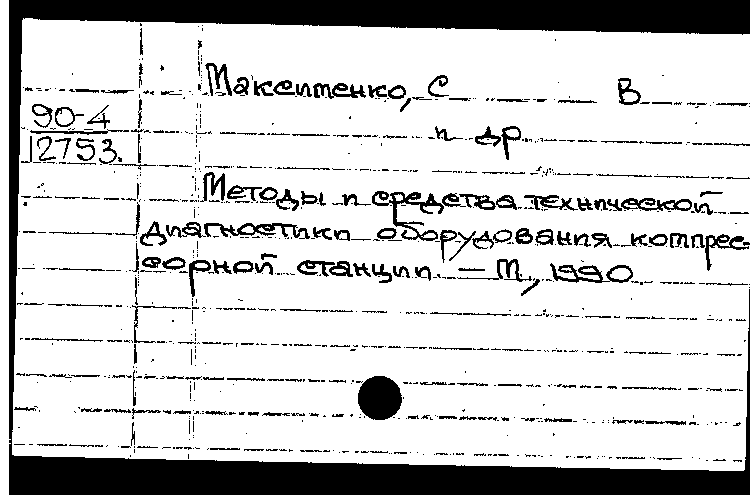 Максименко, С В
и др.
90-4
12753.
Методы и средства технической
диагностики оборудования компрес-
сорной станции. — М., 1990